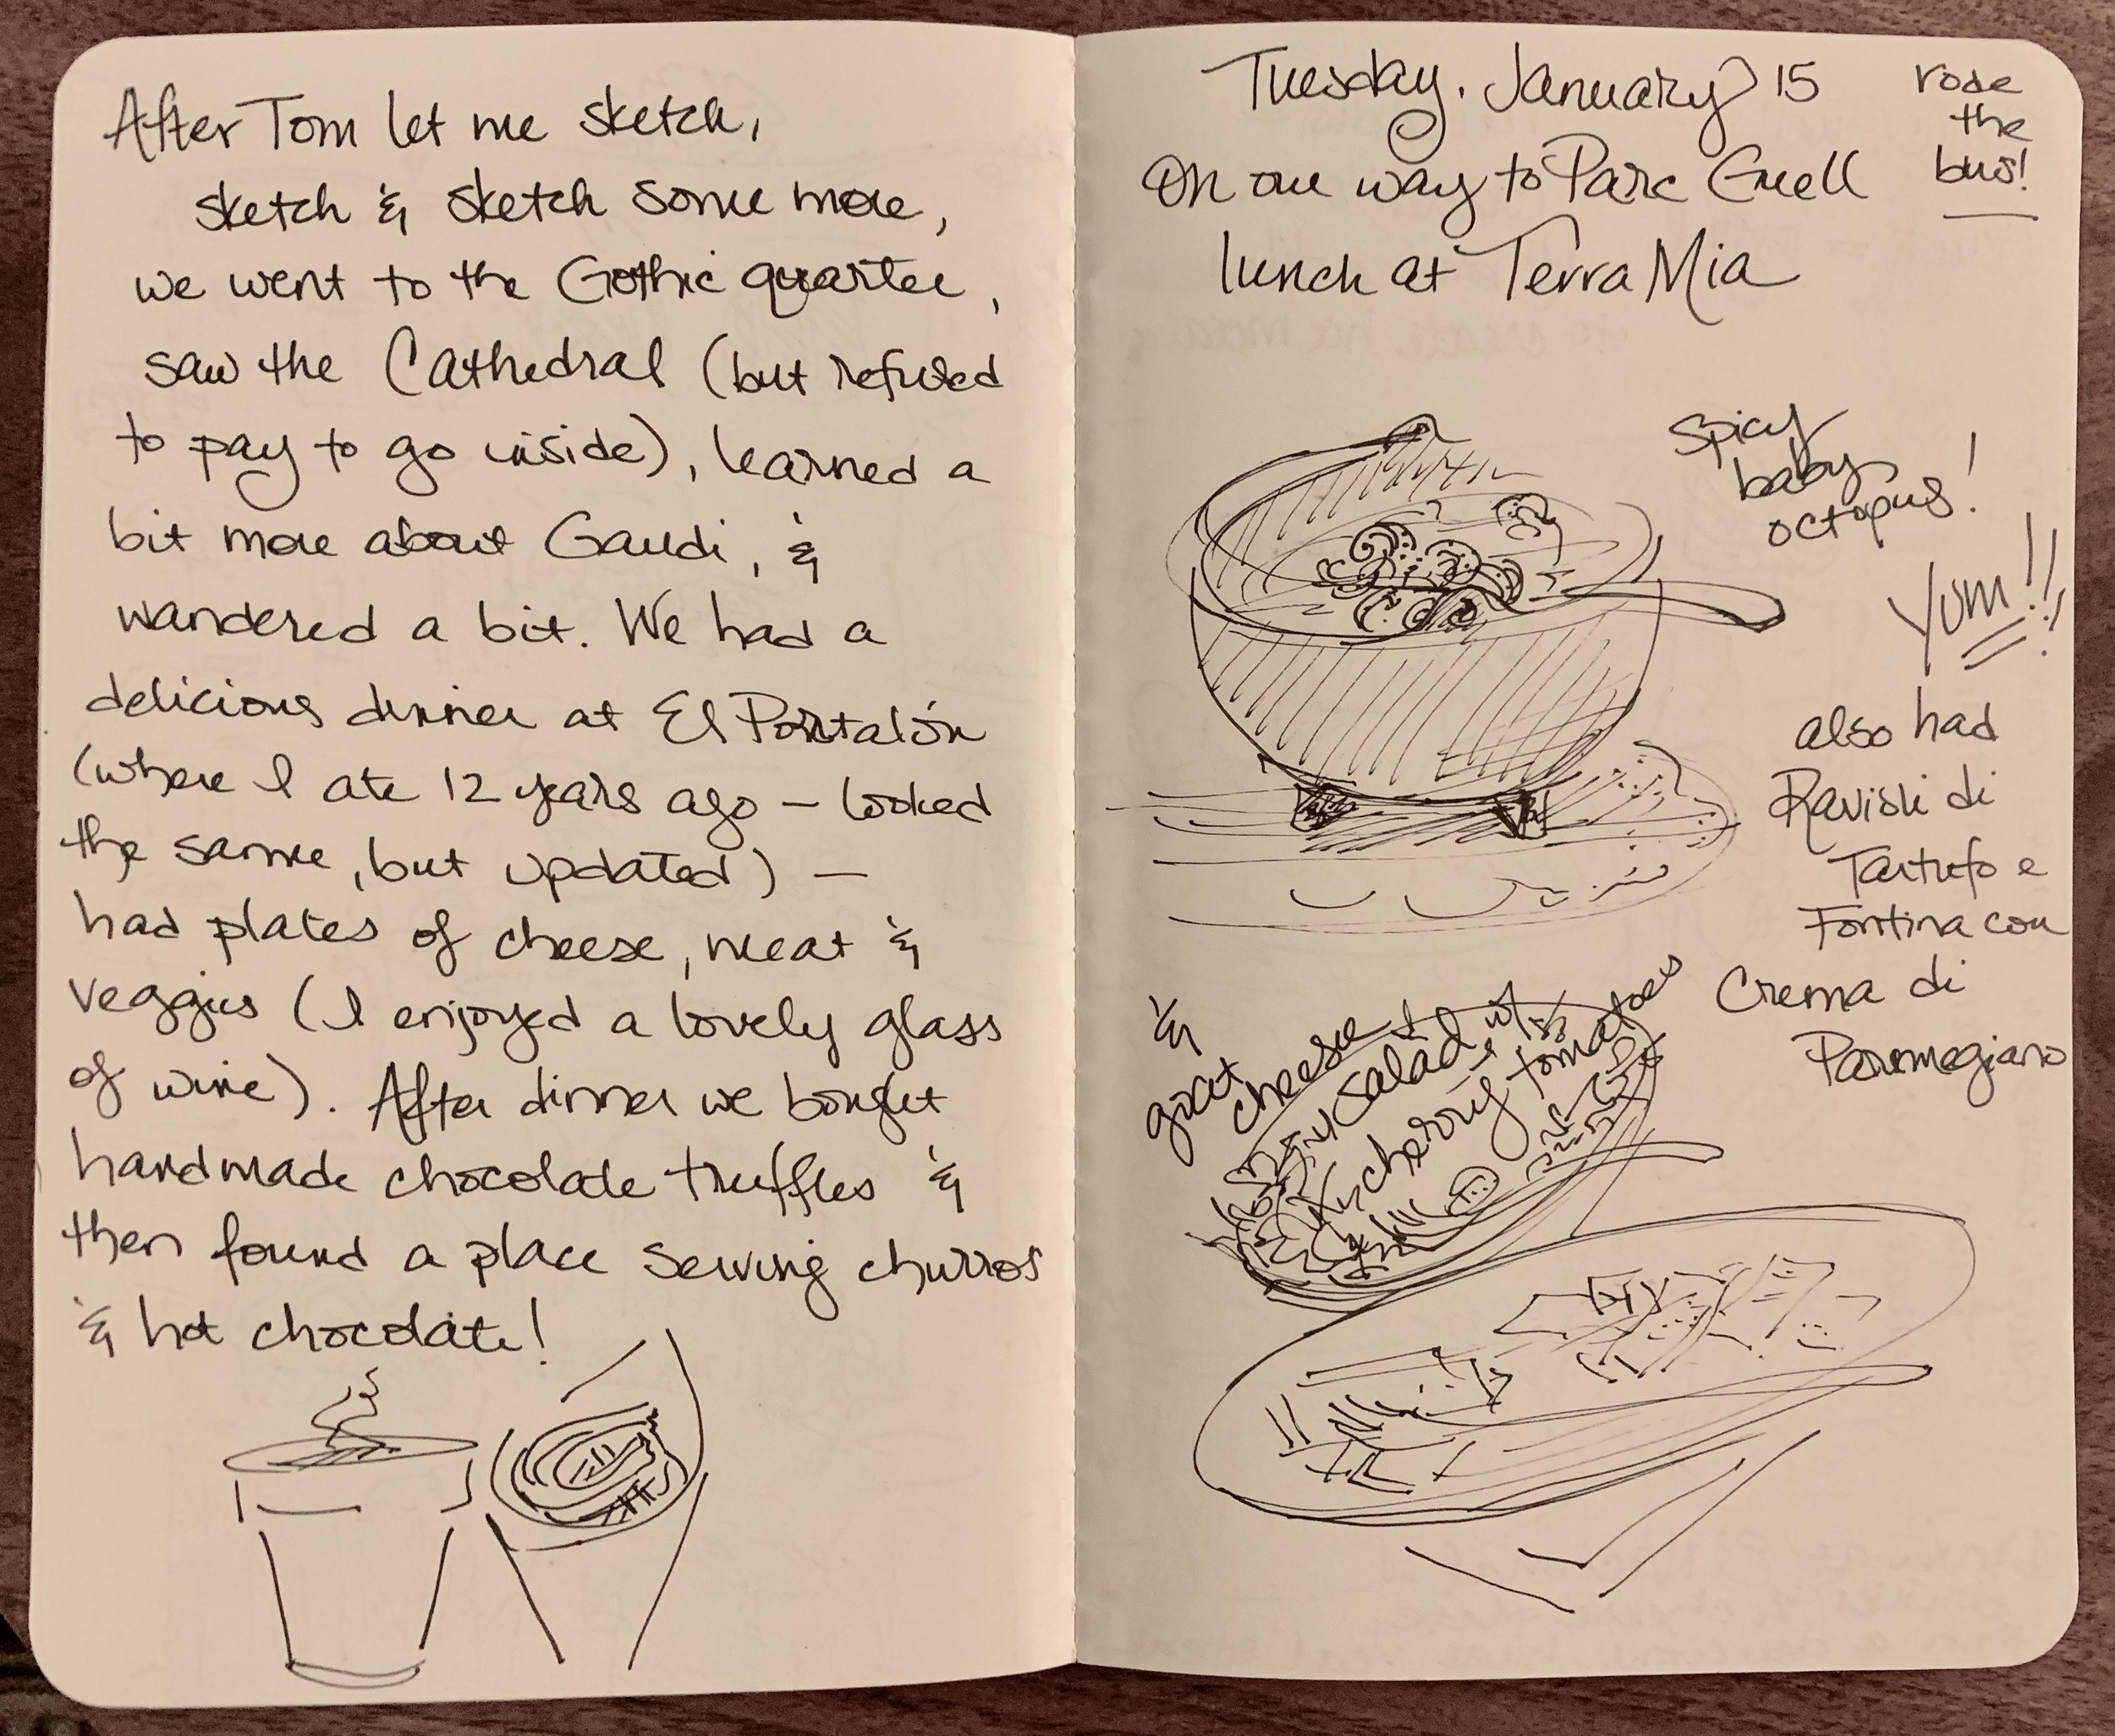 After Tom let me sketch,
sketch & sketch some more,
we went to the Gothic quarter,
saw the Cathedral (but refused
to pay to go inside), learned a
bit more about Gaudi, &
wandered a bit. We had a
delicious dinner at El Portalón
(where I ate 12 years ago – looked
the same, but updated) –
had plates of cheese, meat &
veggies (I enjoyed a lovely glass
of wine). After dinner we bought
handmade chocolate truffles &
then found a place serving churros
& hot chocolate!
Tuesday. January 15
On our way to Parc Guell
lunch at Terra Mia
rode
the
bus!
spicy
baby
octopus!
Yum!!!
also had
Ravioli di
Tartufo e
Fontina con
Crema di
Parmegiano
&
goat
cheese
salad w/
cherry tomatoes